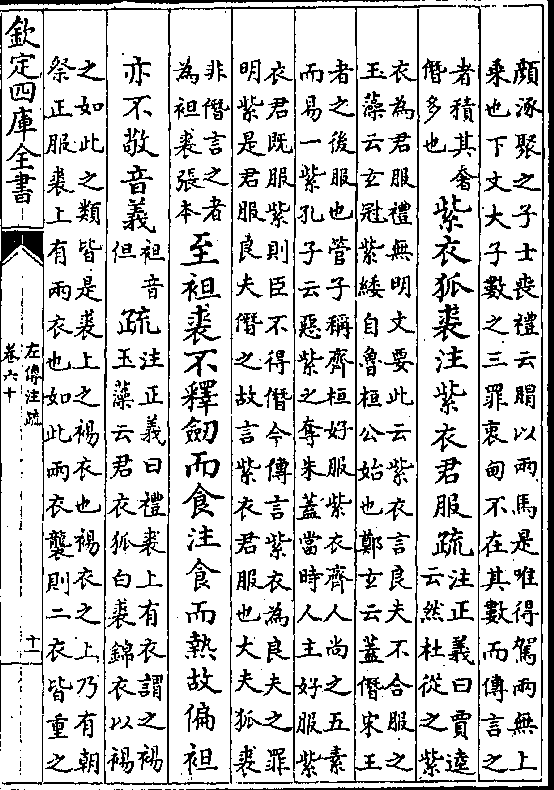 顔涿聚之子士喪禮云賵以兩馬是唯得駕兩無上
乗也下文大子數之三罪衷甸不在其數而傳言之
者積其奢
僭多也
紫衣狐裘注紫衣君服疏
注正義曰賈逵
云然杜從之紫
衣為君服禮無明文要此云紫衣言良夫不合服之
玉藻云玄冠紫緌自魯桓公始也鄭玄云蓋僭宋王
者之後服也管子稱齊桓好服紫衣齊人尚之五素
而易一紫孔子云惡紫之奪朱蓋當時人主好服紫
衣君既服紫則臣不得僭今傳言紫衣為良夫之罪
明紫是君服良夫僭之故言紫衣君服也大夫狐裘
非僭言之者
為袒裘張本
至袒裘不釋劒而食注食而熱故偏袒
亦不敬音義
袒音
但
疏
注正義曰禮裘上有衣謂之裼
玉藻云君衣狐白裘錦衣以裼
之如此之類皆是裘上之裼衣也裼衣之上乃有朝
祭正服裘上有兩衣也如此兩衣襲則二衣皆重之
欽定四庫全書
左傳注疏
卷六十
十一